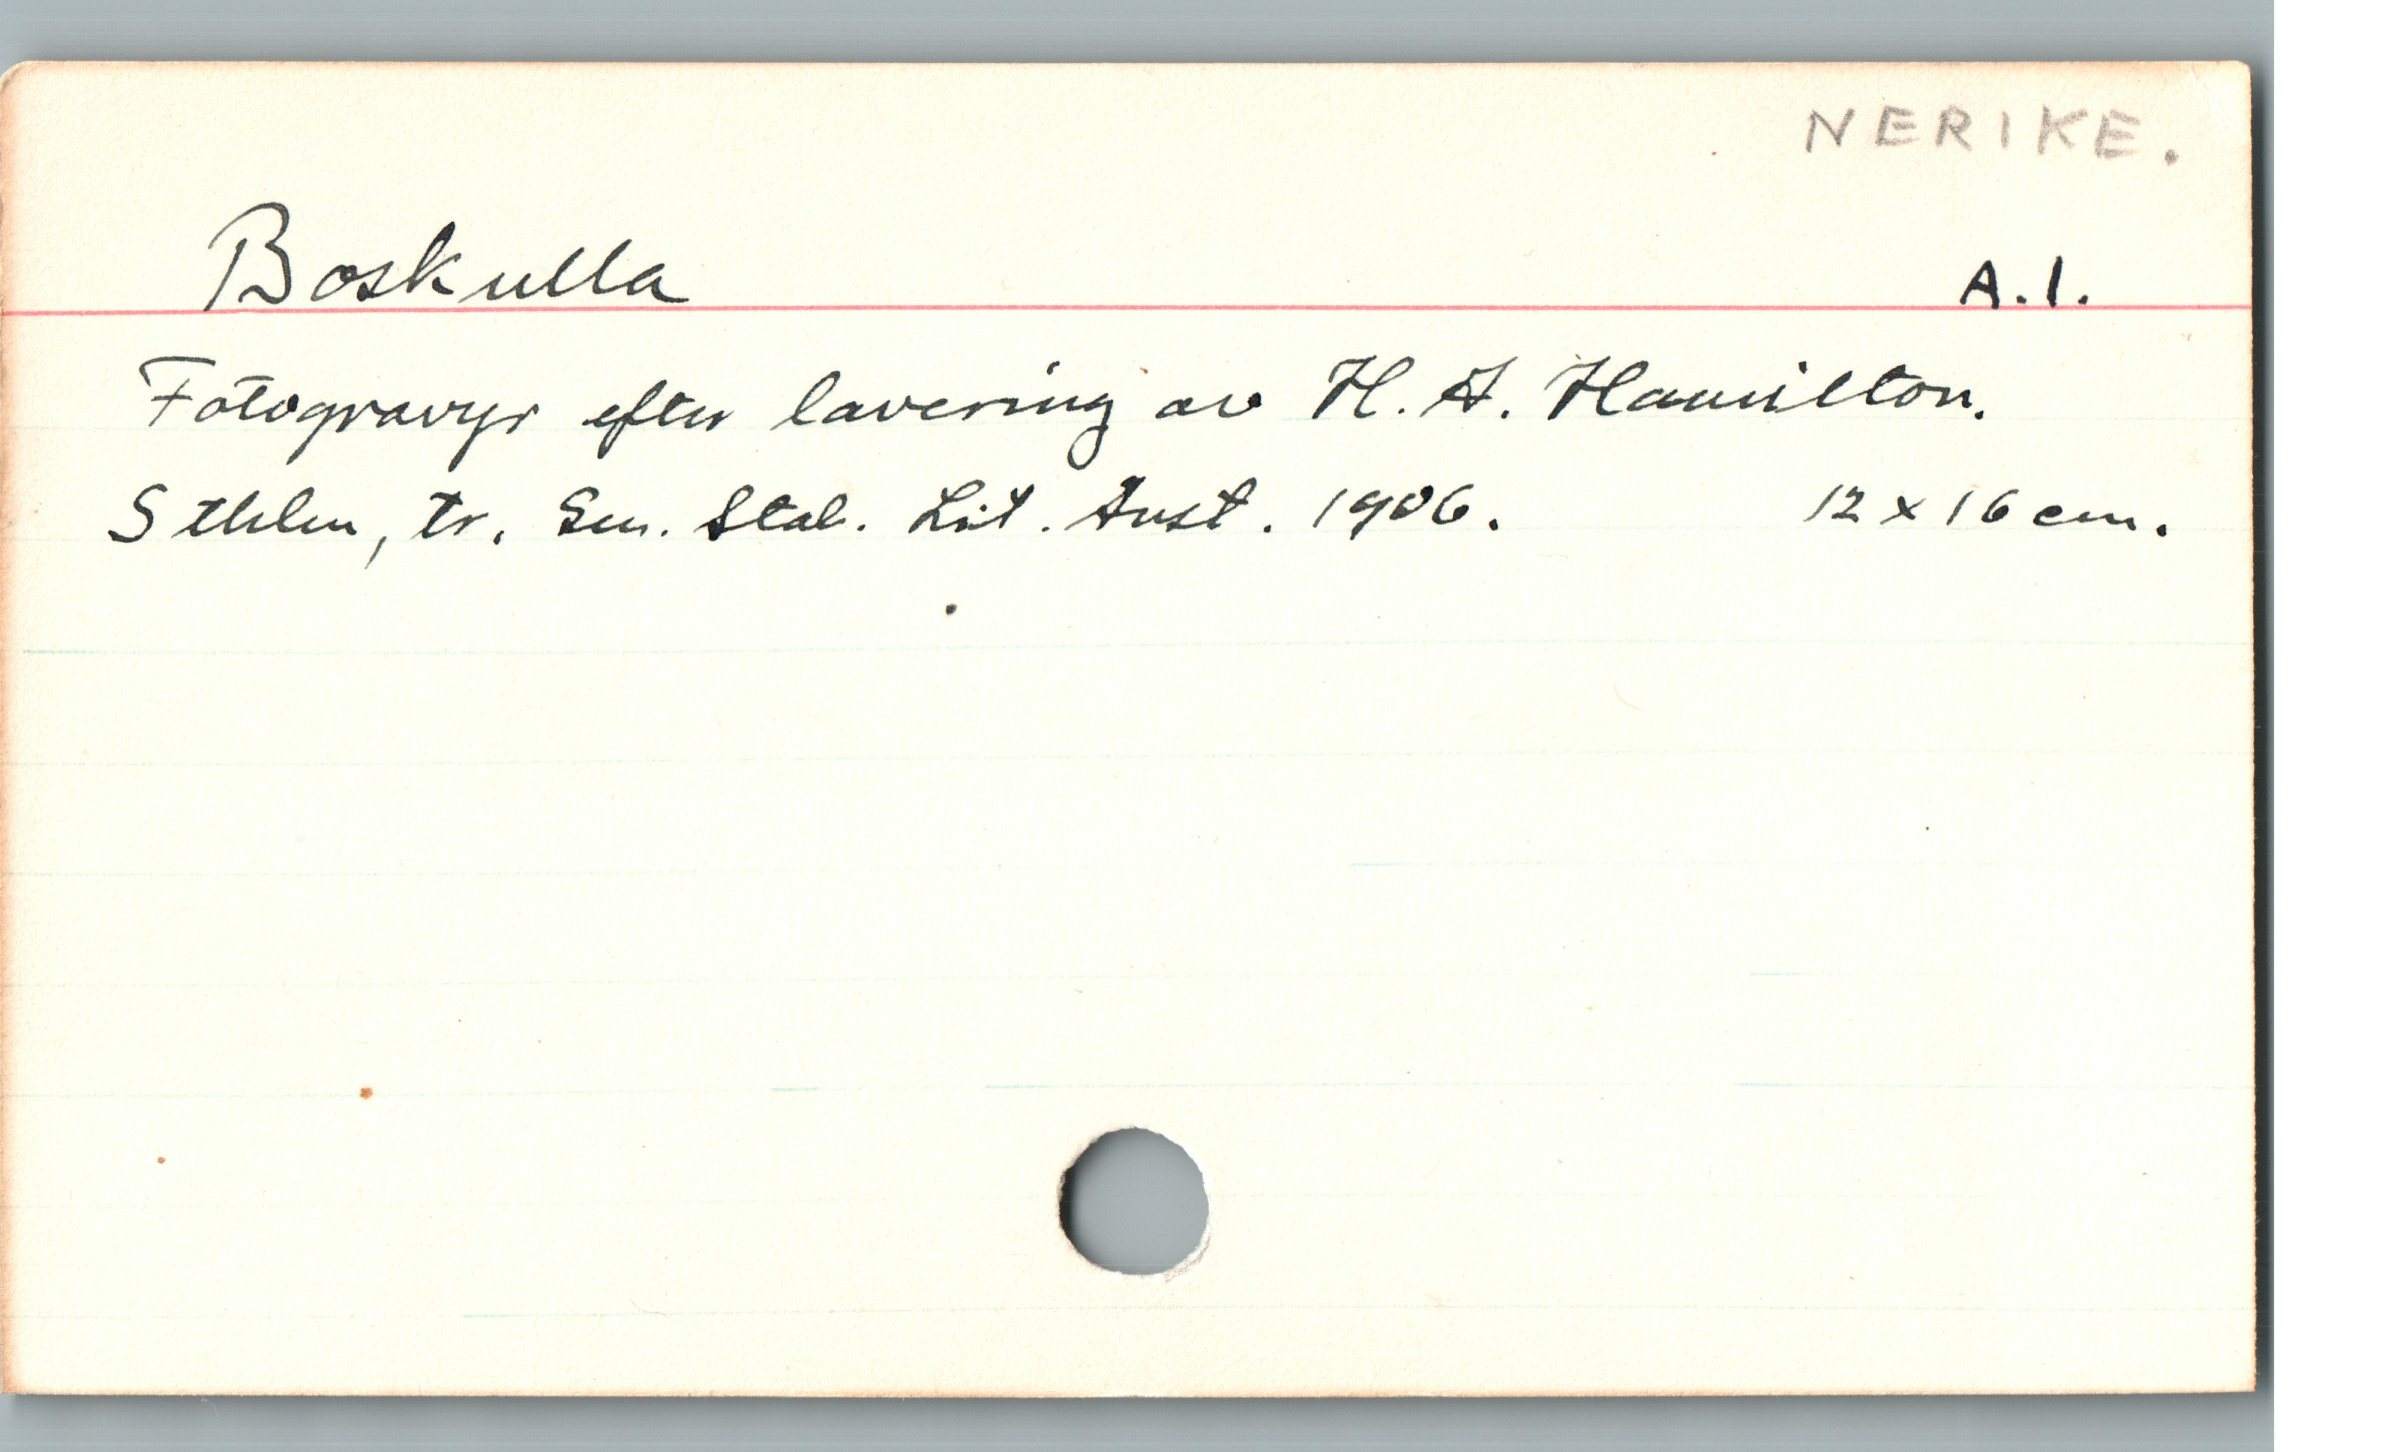 NERIKE.
Boskulla A.1.
Fotogravyr efter lavering av H. A. Hamilton.
Sthlm, tr. Gen. Stab. Lit. Anst. 1906. 12 x 16 cm.